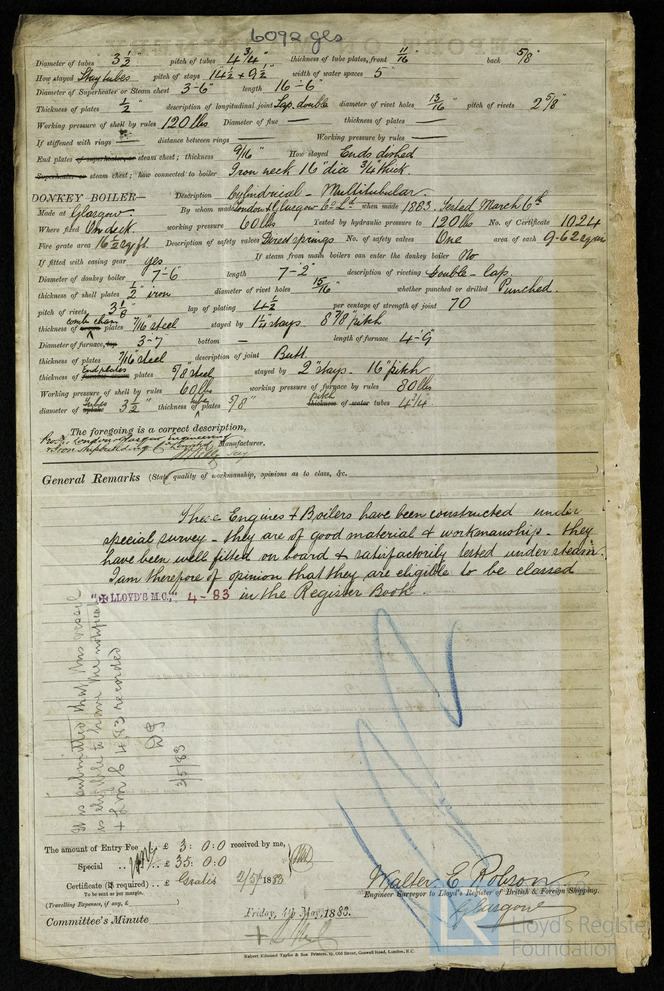 6092 gls
Diameter of tubes 3 1/2" pitch of tubes 4 3/4" thickness of tube plates, front 11/16" back 5/8"
How stayed Stay tubes pitch of stays 14 1/2 + 9 1/2" width of water spaces 5"
Diameter of Superheater or Steam chest 3-6" length 16-6"
Thickness of plates 1/2" description of longitudinal joint Lap. double diameter of rivet holes 13/16" pitch of rivets 2 5/8"
Working pressure of shell by rules 120 lbs Diameter of flue — thickness of plates —
If stiffened with rings — distance between rings — Working pressure by rules —
End plates of superheater, or steam chest; thickness 9/16" How stayed Ends dished
Superheater or steam chest; how connected to boiler Iron neck 16" dia 3/4" thick.
DONKEY BOILER— Description Cylindrical - Multitubular.
Made at Glasgow. By whom made London & Glasgow Co. Ld. when made 1883. Tested March 6th
Where fixed On deck. working pressure 60 lbs Tested by hydraulic pressure to 120 lbs No. of Certificate 1024
Fire grate area 16 1/2 sq ft. Description of safety valves Direct springs No. of safety valves One area of each 9.62 sq in
If fitted with easing gear yes If steam from main boilers can enter the donkey boiler No
Diameter of donkey boiler 7-6" length 7-2" description of riveting Double-lap.
thickness of shell plates 1/2" iron diameter of rivet holes 15/16" whether punched or drilled Punched.
pitch of rivets 3 1/8" lap of plating 4 1/2 per centage of strength of joint 70
thickness of crown comb. cham plates 7/16" steel stayed by 1 1/4" stays. 8 7/8" pitch
Diameter of furnace, top 3-7 bottom — length of furnace 4-9"
thickness of plates 7/16" steel description of joint Butt.
thickness of End plates plates 5/8" steel stayed by 2" stays - 16" pitch
Working pressure of shell by rules 60 lbs working pressure of furnace by rules 80 lbs
diameter of Tubes 3 1/2" thickness of tube plates 5/8" pitch thickness of water tubes 4 3/4"
The foregoing is a correct description,
Pro. London & Glasgow Engineering
& Iron Shipbuilding Co. Limited Manufacturer.
General Remarks (State quality of workmanship, opinions as to class, &c.
These Engines & Boilers have been constructed under
special survey - they are of good material & workmanship - they
have been well fitted on board & satisfactorily tested under steam.
I am therefore of opinion that they are eligible to be classed
"✠ LLOYD'S M.C.," 4-83 in the Register Book.
It is submitted that this vessel
is eligible to have the notification
+ LMC 4.83 recorded
3/5/83
The amount of Entry Fee .. £ 3: 0: 0 received by me,
Special .. £ 35: 0: 0
Certificate (if required) .. £ Gratis 2/5/1883
To be sent as per margin.
(Travelling Expenses, if any, £ )
Walter E. Robson
Engineer Surveyor to Lloyd's Register of British & Foreign Shipping.
Glasgow
Committee's Minute Friday, 4th May, 1883.
Robert Edmund Taylor & Son Printers, 19, Old Street, Goswell Road, London, E.C.
LR
Lloyd's Register
Foundation